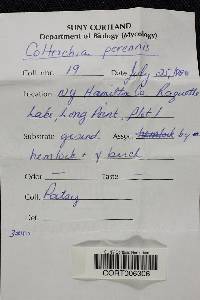 SUNY CORTLAND
Department of Biology (Mycology)
Coltrichia perennis
Coll. nmr. 19 Date July 25,
Location NY Hamilton Co Raquette
Lake, Long Point, Plot 1
Substrate ground Assp. hemlock by
hemlock + y birch
Odor — Taste —
Coll. Patsy
Det.
CORT006306